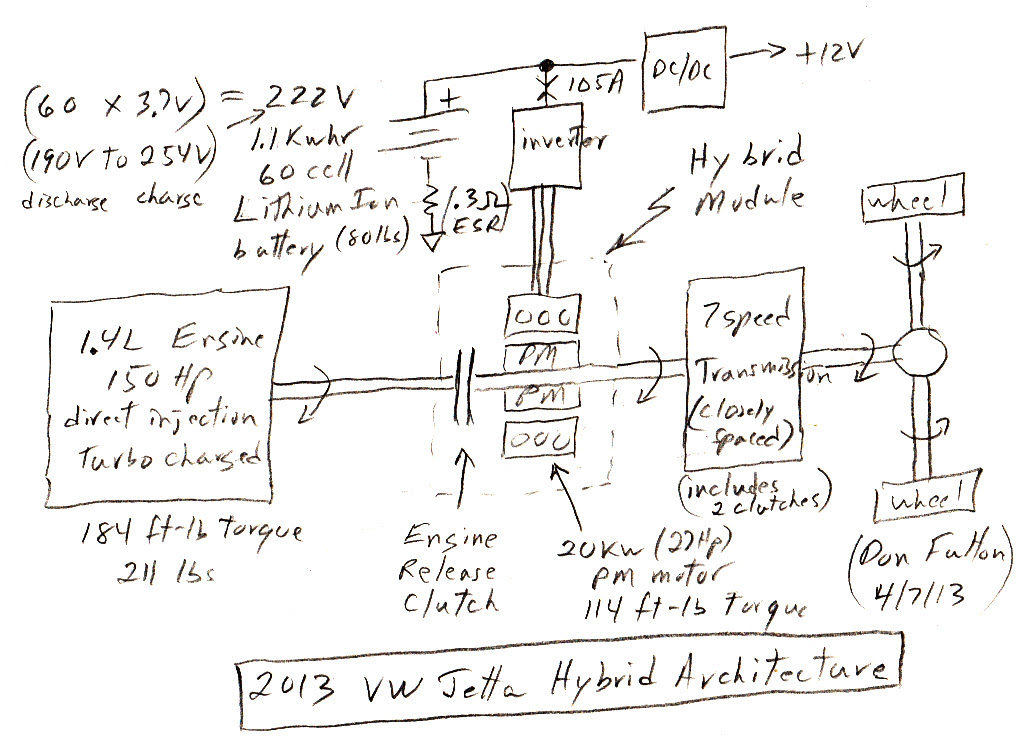 (60 x 3.7V) = 222V
(190V to 254V)
discharge charge
1.1 Kwhr
60 cell
Lithium Ion
battery (80 lbs)
+
(.3Ω
ESR)
105A
DC/DC
+12V
inverter
Hybrid
Module
wheel
1.4L Engine
150 HP
direct injection
Turbo charged
184 ft-lb torque
211 lbs
000
PM
PM
000
Engine
Release
Clutch
20Kw (27Hp)
PM motor
114 ft-lb torque
7 speed
Transmission
(closely
spaced)
(includes
2 clutches)
wheel
(Don Fulton)
4/7/13
2013 VW Jetta Hybrid Architecture